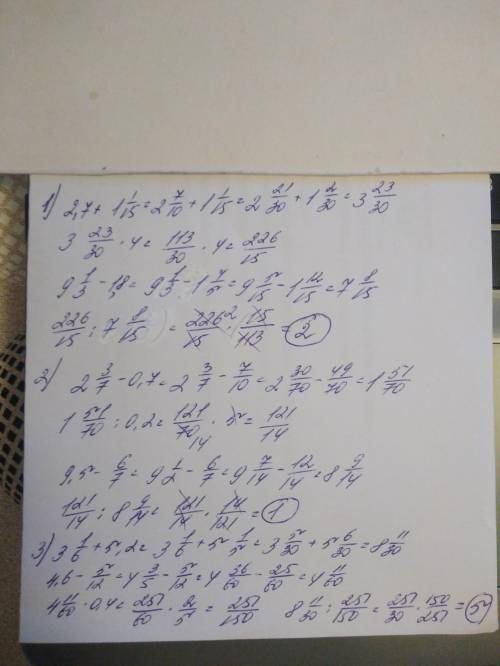 1) 2,7 + 1 1/15 = 2 7/10 + 1 1/15 = 2 21/30 + 1 2/30 = 3 23/30
3 23/30 · 4 = 113/30 · 4 = 226/15
9 1/3 - 1,8 = 9 1/3 - 1 4/5 = 9 5/15 - 1 12/15 = 7 8/15
226/15 : 7 8/15 = 226 2/15 · 15/113 = 2
2) 2 3/7 - 0,7 = 2 3/7 - 7/10 = 2 30/70 - 49/70 = 1 51/70
1 51/70 : 0,2 = 121/70 14 · 5 = 121/14
9,5 - 6/7 = 9 1/2 - 6/7 = 9 7/14 - 12/14 = 8 9/14
121/14 : 8 9/14 = 121/14 · 14/121 = 1
3) 3 1/6 + 5,2 = 3 1/6 + 5 1/5 = 3 5/30 + 5 6/30 = 8 11/30
4,6 - 5/12 = 4 3/5 - 5/12 = 4 36/60 - 25/60 = 4 11/60
4 11/60 · 0,4 = 251/60 · 2/5 = 251/150 8 11/30 : 251/150 = 251/30 · 150/251 = 5